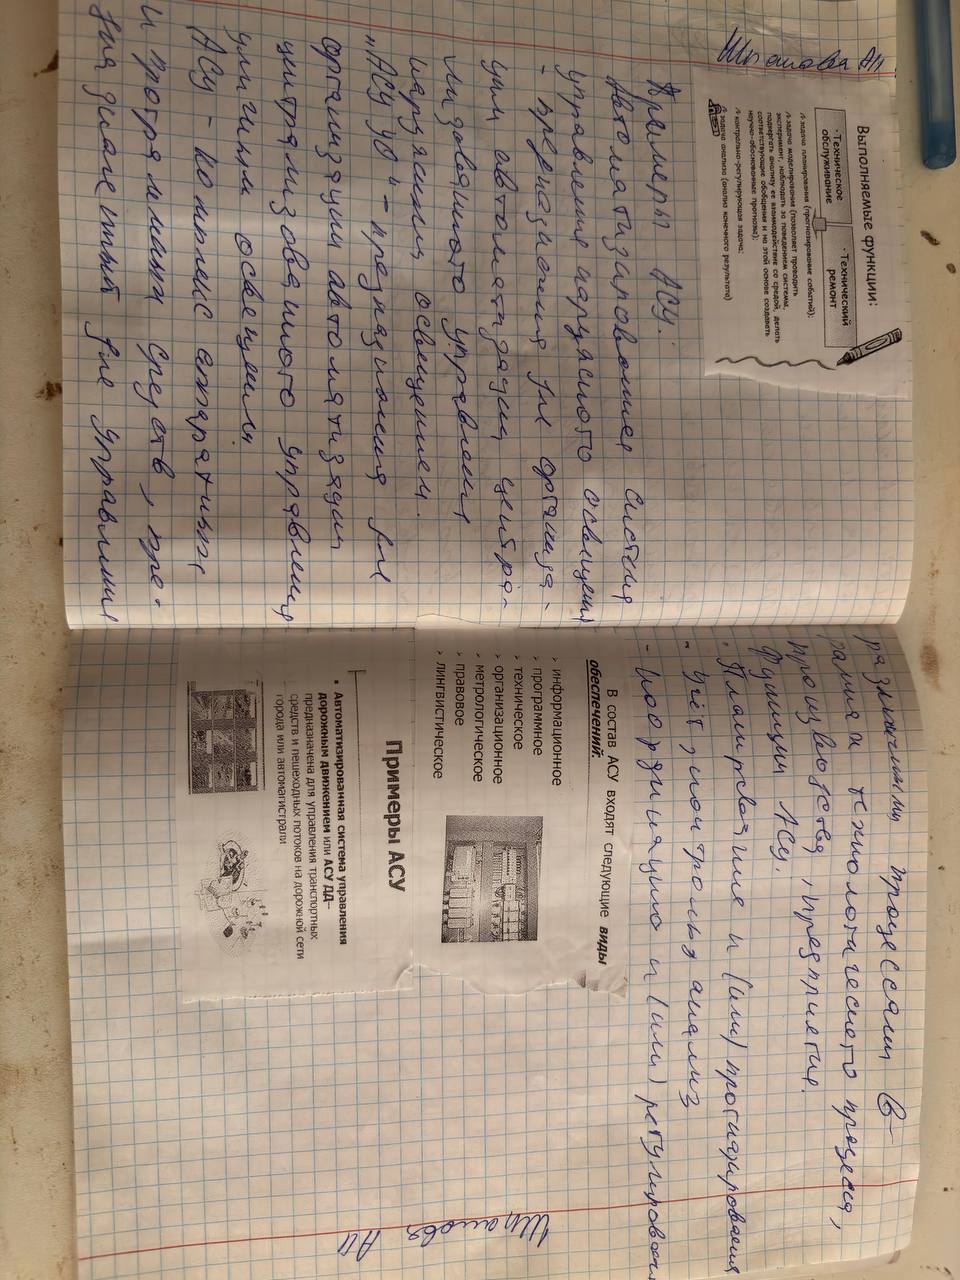 Шпакова АП
Выполняемые функции:
·Техническое
обслуживание
·Технический
ремонт
задача планирования (прогнозирование событий);
задача моделирования (позволяет проводить
эксперимент, наблюдать за поведением системы,
подвергать анализу ее взаимодействие со средой, делать
соответствующие обобщения и на этой основе создавать
научно-обоснованные прогнозы);
контрольно-регулирующая задача;
задача анализа (анализ конечного результата)
Примеры АСУ.
Автоматизированная система
управления наружного освещения
- предназначена для организа-
ции автоматизации центра-
лизованного управления
наружным освещением.
„АСУ УО" - предназначена для
организации автоматизации
централизованного управления
уличным освещением.
АСУ - комплекс аппаратных
и программных средств, пре-
дназначенный для управления
различными процессами в
рамках технологического процесса,
производства, предприятия.
Функции АСУ.
· Планирование и (или) прогнозирование
- Учёт, контроль, анализ
- Координацию и (или) регулирование
В состав АСУ входят следующие виды
обеспечений:
› информационное
› программное
› техническое
› организационное
› метрологическое
› правовое
› лингвистическое
Примеры АСУ
• Автоматизированная система управления
дорожным движением или АСУ ДД–
предназначена для управления транспортных
средств и пешеходных потоков на дорожной сети
города или автомагистрали
Шпакова АП